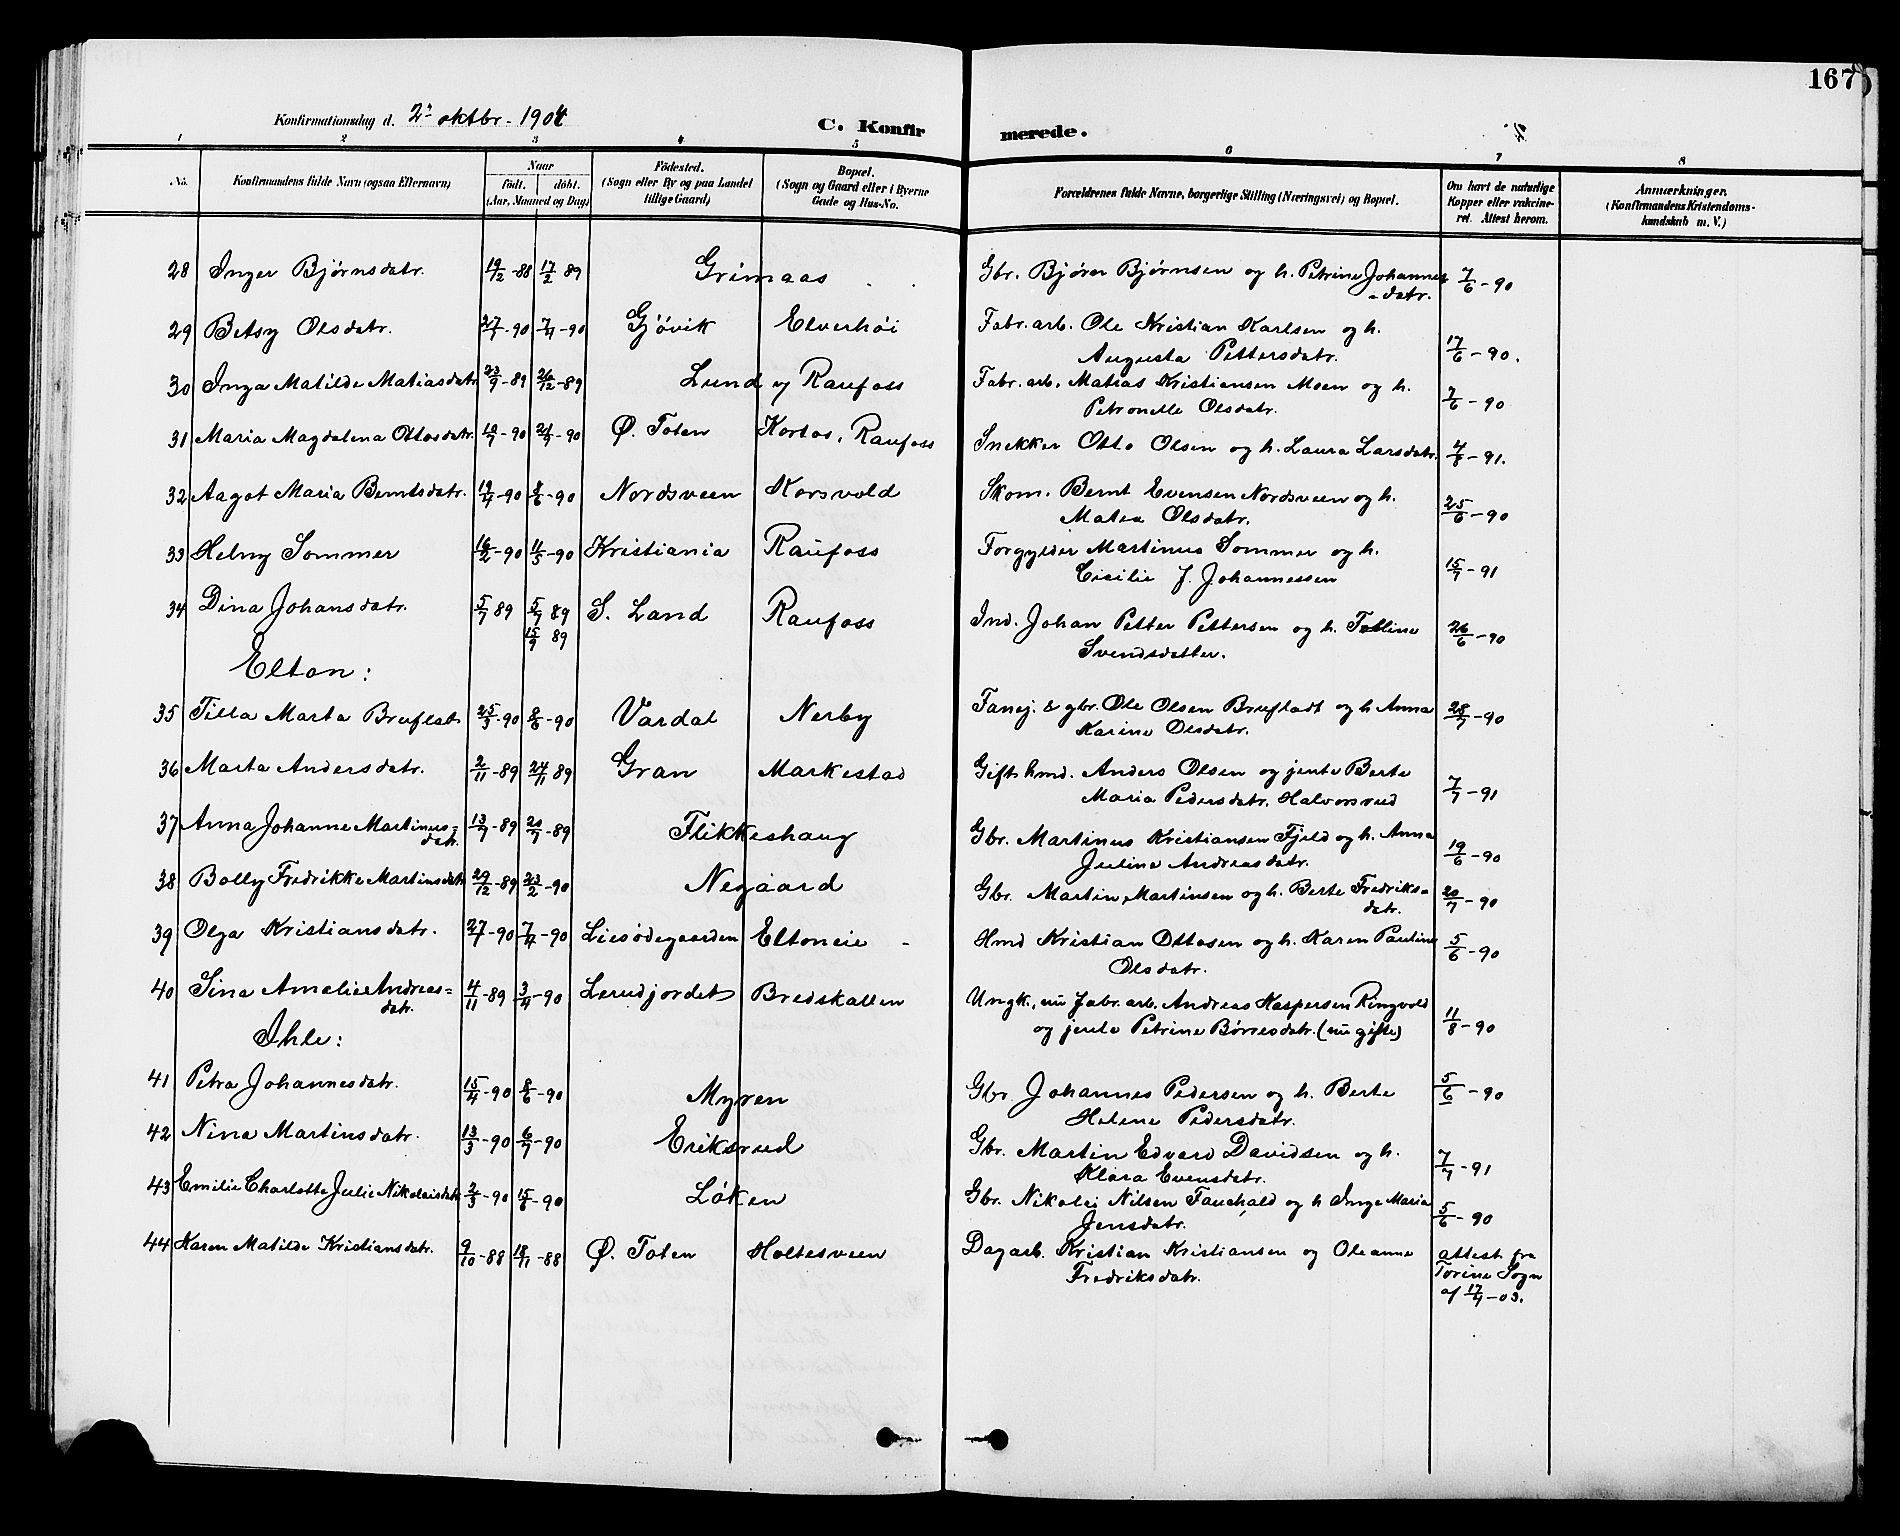 167
Konfirmationsdag d. 2' oktbr. 1904
C. Konfirmerede.
1 2 3 4 5 6 7 8
No. Konfirmandens fulde Navn (ogsaa Efternavn) Naar født. døbt. (Aar, Maaned og Dag) Fødested. (Sogn eller By og paa Landet tillige Gaard) Bopæl. (Sogn og Gaard eller i Byerne Gade og Hus-No. Forældrenes fulde Navne, borgerlige Stilling (Næringsvei) og Bopæl. Om havt de naturlige Kopper eller vakcineret. Attest herom. Anmærkninger. (Konfirmandens Kristendomskundskab m. V.)
28 Inger Bjørnsdatr. 19/2-88 17/2 89 Grimaas Gbr. Bjørn Bjørnsen og h. Petrine Johannes-datr. 7/6-90
29 Betsy Olsdatr. 27/1-90 7/4-90 Gjøvik Elverhøi Fabr. arb. Ole Kristian Karlsen og h.
Augusta Pettersdatr. 17/6-90.
30 Inga Matilde Matiasdatr. 23/9-89 26/12-89 Lund og Raufoss Fabr. arb. Matias Kristiansen Moen og h.
Petronelle Olsdatr. 7/6-90
31 Maria Magdalena Ottosdatr. 10/7-90 21/7-90 Ø. Toten Kortos, Raufoss Snekker Otto Olsen og h. Laura Larsdatr. 4/8-91.
32 Aagot Maria Berntsdatr. 19/4-90 8/6-90 Nordsveen Korsvold Skom. Bernt Evensen Nordsveen og h.
Matea Olsdatr. 25/6-90
33 Helny Sommer 16/2-90 11/5-90 Kristiania Raufoss Forgylder Martinus Sommer og h.
Cicilie J. Johannessen 15/7-91
34 Dina Johansdatr. 5/7 89 5/7 89 S. Land Raufoss Ind. Johan Petter Pettersen og h. Talline
15/9 89 Svendsdatter. 26/6-90
Elton:
35 Tilla Marta Bruflat 25/3-90 8/6-90 Vardal Nerby Fanej. & gbr. Ole Olsen Brufladt og h. Anna
Karine Olsdatr. 28/7-90
36 Marta Andersdatr. 2/11-89 24/11 89 Gran Markestad Gift hmd. Anders Olsen og jente Berte
Maria Pedersdatr. Halvorsrud 7/7-91
37 Anna Johanne Martinus-datr. 13/7-89 20/7-89 Flikkeshaug Gbr. Martinus Kristiansen Fjeld og h. Anna
Juline Andreasdatr. 19/6-90
38 Bolly Fredrikke Martinsdatr. 29/12-89 23/2-90 Negaard Gbr. Martin Martinsen og h. Berte Fredriks-datr. 20/7-90
39 Olga Kristiansdatr. 27/1-90 7/4-90 Liesødegaarden Eltoneie Hmd Kristian Ottosen og h. Karen Pauline
Olsdatr. 5/6-90
40 Sina Amalie Andreas=datr. 4/11-89 3/4-90 Lerudjordet Bredskallen Ungk., nu fabr. arb. Andreas Kaspersen Ringvold
og jente Petrine Børresdatr. (nu gifte) 11/8-90
Ihle:
41 Petra Johannesdatr. 15/4-90 8/6-90 Myren Gbr. Johannes Pedersen og h. Berte
Helene Pedersdatr. 5/6-90
42 Nina Martinsdatr. 13/3-90 6/7-90 Eriksrud Gbr. Martin Edvard Davidsen og h.
Klara Evensdatr. 7/7-91
43 Emilie Charlotte Julie Nikolaisdatr. 2/3-90 15/6-90 Løken Gbr. Nikolai Nilsen Fauchald og h Inge Maria
Jensdatr. 5/6-90
44 Karen Matilde Kristiansdatr. 9/10-88 18/11-88 Ø. Toten Holtesveen Dagarb. Kristian Kristiansen og Oleanne
Fredriksdatr. attest fra
Torine Sogn
af 17/4-03.